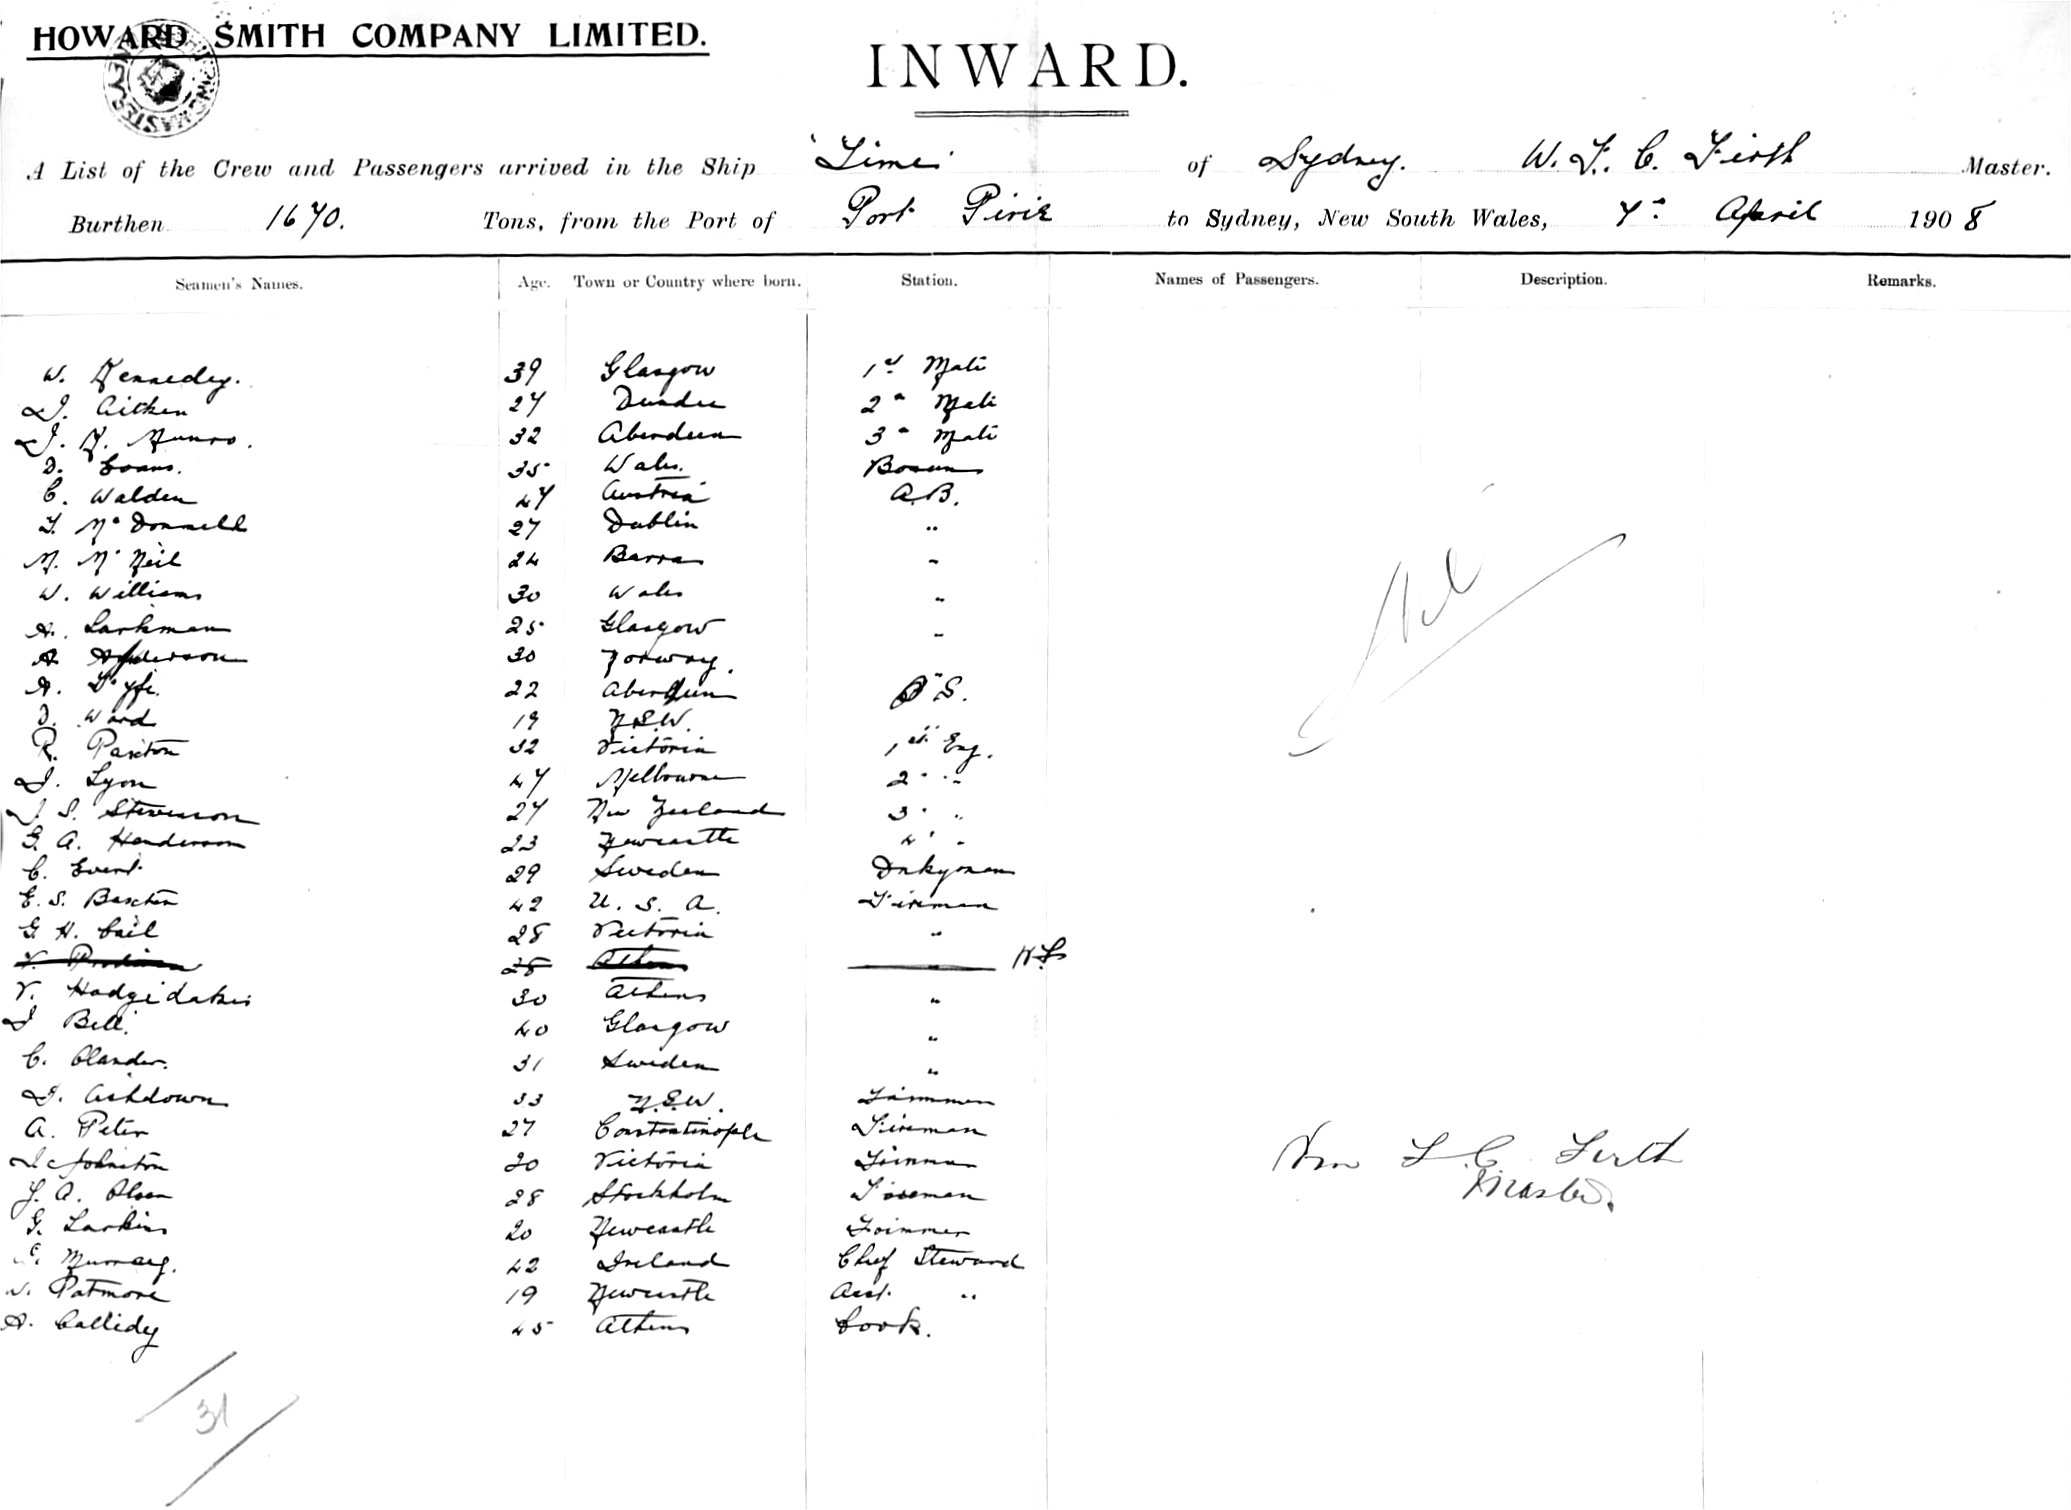 HOWARD SMITH COMPANY LIMITED.
INWARD.
A List of the Crew and Passengers arrived in the Ship "Time" of Sydney. W. F. C. Firth Master.
Burthen 1670. Tons, from the Port of Port Pirie to Sydney, New South Wales, 7th April 1908
Seamen's Names. Age. Town or Country where born. Station. Names of Passengers. Description. Remarks.
W. Kennedy. 39 Glasgow 1st Mate
J. Aitken 27 Dundee 2nd Mate
J. K. Munro. 32 Aberdeen 3rd Mate
D. Evans. 35 Wales. Bosun
C. Walden 47 Austria A.B.
T. McDonnell 27 Dublin "
M. McNeil 24 Barra "
W. Williams 30 Wales "
A. Larkman 25 Glasgow "
A. Anderson 30 Norway. "
A. Duffe. 22 Aberdeen O.S.
J. Ward 19 N.S.W.
R. Paxton 32 Victoria 1st Eng.
J. Lyon 47 Melbourne 2 " "
J. S. Stevenson 27 New Zealand 3 " "
G. A. Henderson 23 Newcastle 4 " "
C. Evert 29 Sweden Dnkyman
E. S. Baxter 42 U. S. A. Fireman
G. H. Cail 28 Victoria "
V. 28 Athens "
V. Hadgidakis 30 Athens "
J Bell. 40 Glasgow "
C. Olander. 31 Sweden "
J. Ashdown 33 N.S.W. Trimmer
A. Peter 27 Constantinople Fireman
J. Johnston 20 Victoria Trimmer
J. A. Olsen 28 Stockholm Fireman
G. Larkins 20 Newcastle Trimmer
Murray. 42 Ireland Chief Steward
W. Patmore 19 Newcastle Asst. "
A. Callidy 45 Athens Cook.
Nil
Wm F. C. Firth
Master.
31